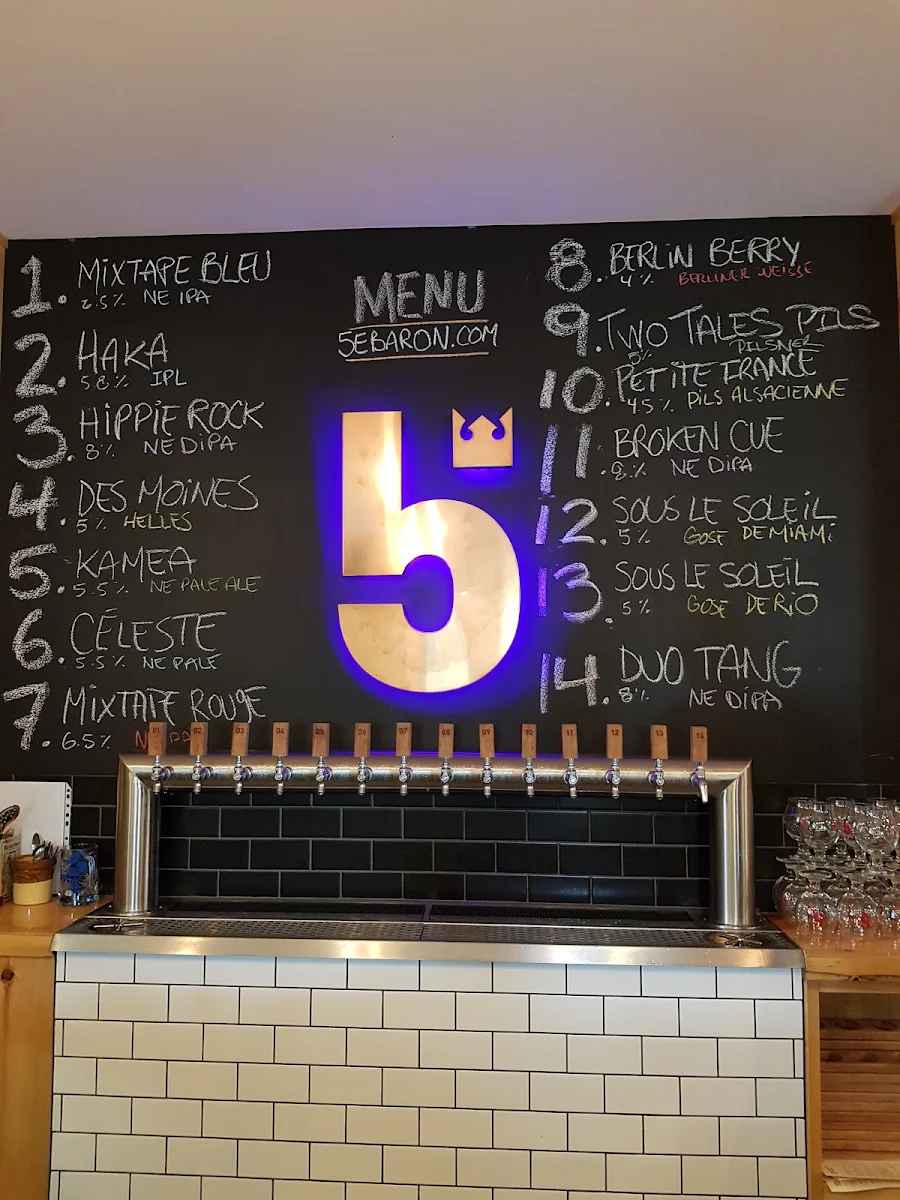 1. MIXTAPE BLEU
6.5% NE IPA
2. HAKA
5.8% IPL
3. HIPPIE ROCK
8% NE DIPA
4. DES MOINES
5% HELLES
5. KAMEA
5.5% NE PALE ALE
6. CÉLESTE
5.5% NE PALE
7. MIXTAPE ROUGE
6.5%
MENU
5EBARON.COM
5
8. BERLIN BERRY
4% BERLINER WEISSE
9. TWO TALES PILS
5% PILSNER
10. PETITE FRANCE
4.5% PILS ALSACIENNE
11. BROKEN CUE
8% NE DIPA
12. SOUS LE SOLEIL
5% GOSE DE MIAMI
13. SOUS LE SOLEIL
5% GOSE DE RIO
14. DUO TANG
8% NE DIPA
01 02 03 04 05 06 07 08 09 10 11 12 13 14